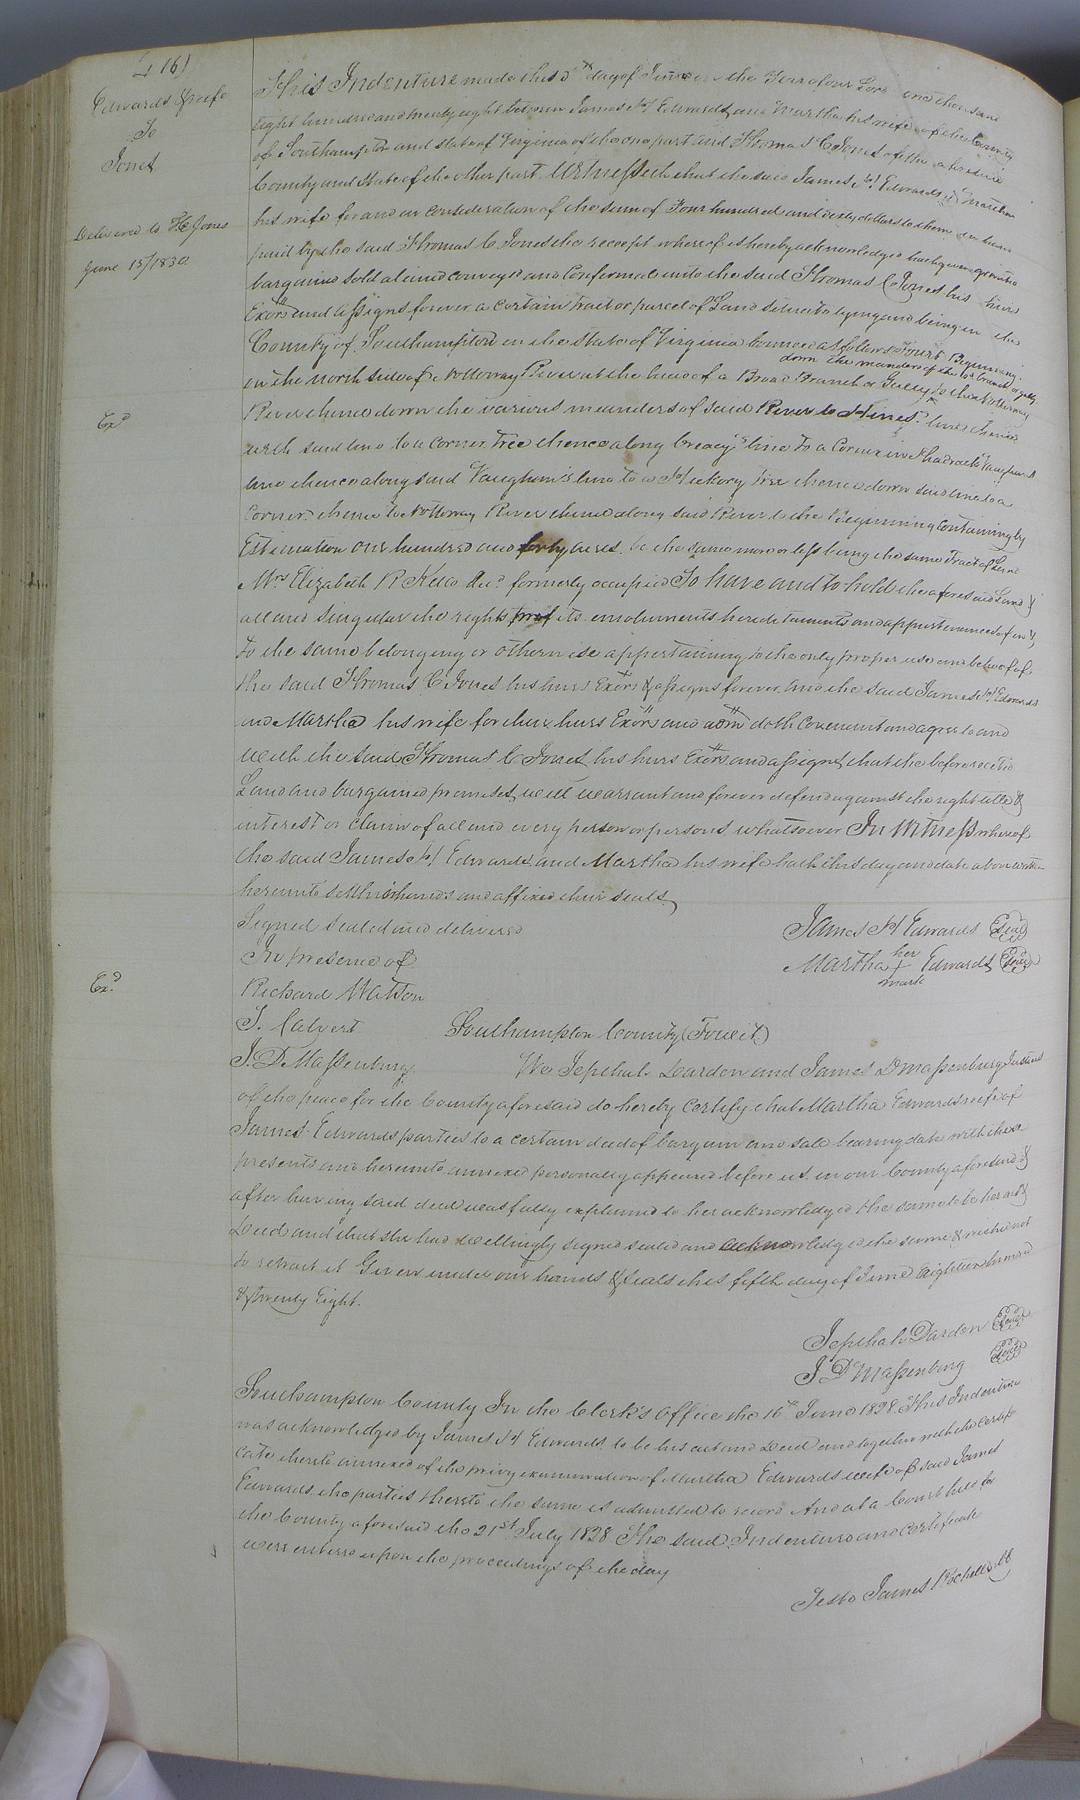 161
Edwards & wife
To
Jones
Delivered to  Jones
June 15/1830
Exd
Exd
This Indenture made this 5th day of June in the Year of our Lord one thousand
Eight hundred and twenty eight between James H Edwards and Martha his wife of the County
of Southampton and state of Virginia of the one part and Thomas C Jones of the aforesaid
County and State of the other part Witnesseth that the said James H Edwards & Martha
his wife for and in consideration of the sum of Four hundred and sixty dollars to them in hand
paid by the said Thomas C Jones the receipt whereof is hereby acknowledged hath given granted
bargained sold aliened conveyed and Confirmed unto the said Thomas C Jones his heirs
Exors and assigns forever a certain tract or parcel of Land situate lying and being in the
County of Southampton in the State of Virginia bounded as follows Towit Beginning
down the meanders of the sd branch or gully
on the north side of Nottoway River at the head of a Broad Branch or Gully to the Nottoway
River thence down the various meanders of said River to Hines' line thence
with said line to a corner Tree thence along Creacy's line to a Corner in Shadrack Vaughan's
line thence along said Vaughan's line to a Hickory tree thence down said line to a
Corner thence to Nottoway River thence along said River to the Beginning Containing by
Estimation one hundred and forty acres be the same more or less being the same Tract of Land
Mrs Elizabeth R Kello decd formerly occupied To have and to hold the aforesaid Land &
all and singular the rights profits emoluments hereditaments and appurtenances of in &
to the same belonging or otherwise appertaining to the only proper use and behoof of
the said Thomas C Jones his heirs Exors & assigns forever and the said James H Edwards
and Martha his wife for their heirs Exors and adm doth Covenant and agree to and
with the said Thomas C Jones his heirs Exors and assigns that the before recited
Land and bargained premises will warrant and forever defend against the right title &
interest or claim of all and every person or persons whatsoever In Witness whereof
the said James H Edwards and Martha his wife hath this day and date above written
hereunto set their hands and affixed their seals
Signed sealed and delivered
In presence of
Richard Watson
S. Calvert
J. D. Massenburg
James H Edwards Seal
her
Martha + Edwards Seal
mark
Southampton County (Towit)
We Jepthah Dardon and James D Massenburg Justices
of the peace for the County aforesaid do hereby Certify that Martha Edwards wife of
James Edwards parties to a certain deed of bargain and sale bearing date with these
presents and hereunto annexed personally appeared before us in our County aforesaid &
after having said deed was fully explained to her acknowledged the same to be her act &
Deed and that she had willingly signed sealed and acknowledged the same & wished not
to retract it Given under our hands & seals this fifth day of June Eighteen hundred
& twenty Eight.
Jepthah Dardon Seal
J D Massenburg Seal
Southampton County In the Clerk's Office the 16th June 1828 This Indenture
was acknowledged by James H Edwards to be his act and Deed and together with the certifi
cate thereto annexed of the privy examination of Martha Edwards wife of said James
Edwards the parties thereto the same is admitted to record And at a Court held for
the County aforesaid the 21st July 1828 The said Indenture and certificate
were entered upon the proceedings of the day
Teste James Rochelle